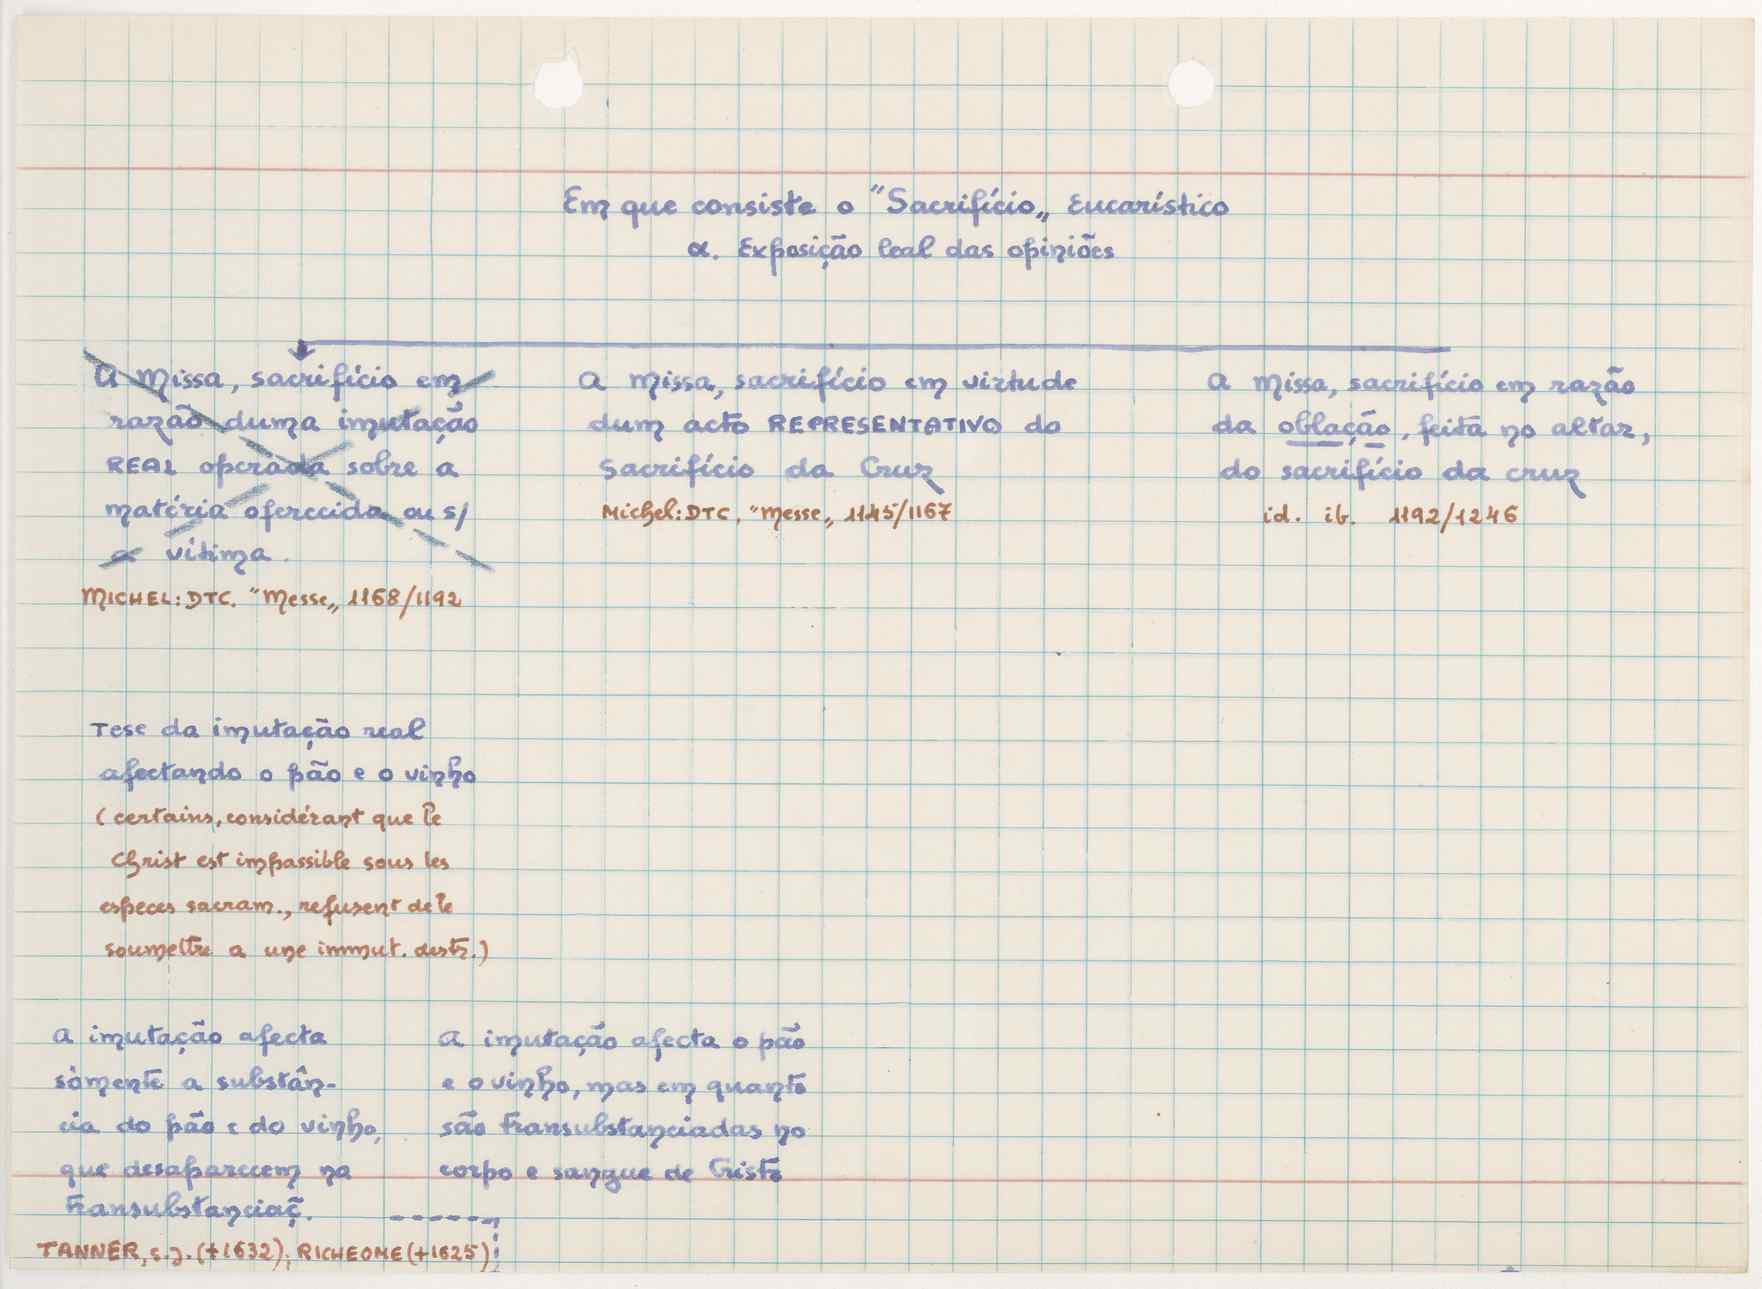 Em que consiste o "Sacrifício„ Eucarístico
α. Exposição leal das opiniões
A Missa, sacrifício em
razão duma imutação
REAL operada sobre a
matéria oferecida ou s/
a vítima.
MICHEL: DTC. "Messe„ 1168/1192
A Missa, sacrifício em virtude
dum acto REPRESENTATIVO do
Sacrifício da Cruz
Michel: DTC, "Messe„ 1145/1167
A Missa, sacrifício em razão
da oblação, feita no altar,
do sacrifício da cruz
id. ib. 1192/1246
Tese da imutação real
afectando o pão e o vinho
(certains, considérant que le
Christ est impassible sous les
especes sacram., refusent de le
soumettre a une immut. destr.)
A imutação afecta
sòmente a substân-
cia do pão e do vinho,
que desaparecem na
transubstanciaç̃.
TANNER, s.j. (+1632); RICHEOME (+1625)
A imutação afecta o pão
e o vinho, mas em quanto
são transubstanciadas no
corpo e sangue de Cristo